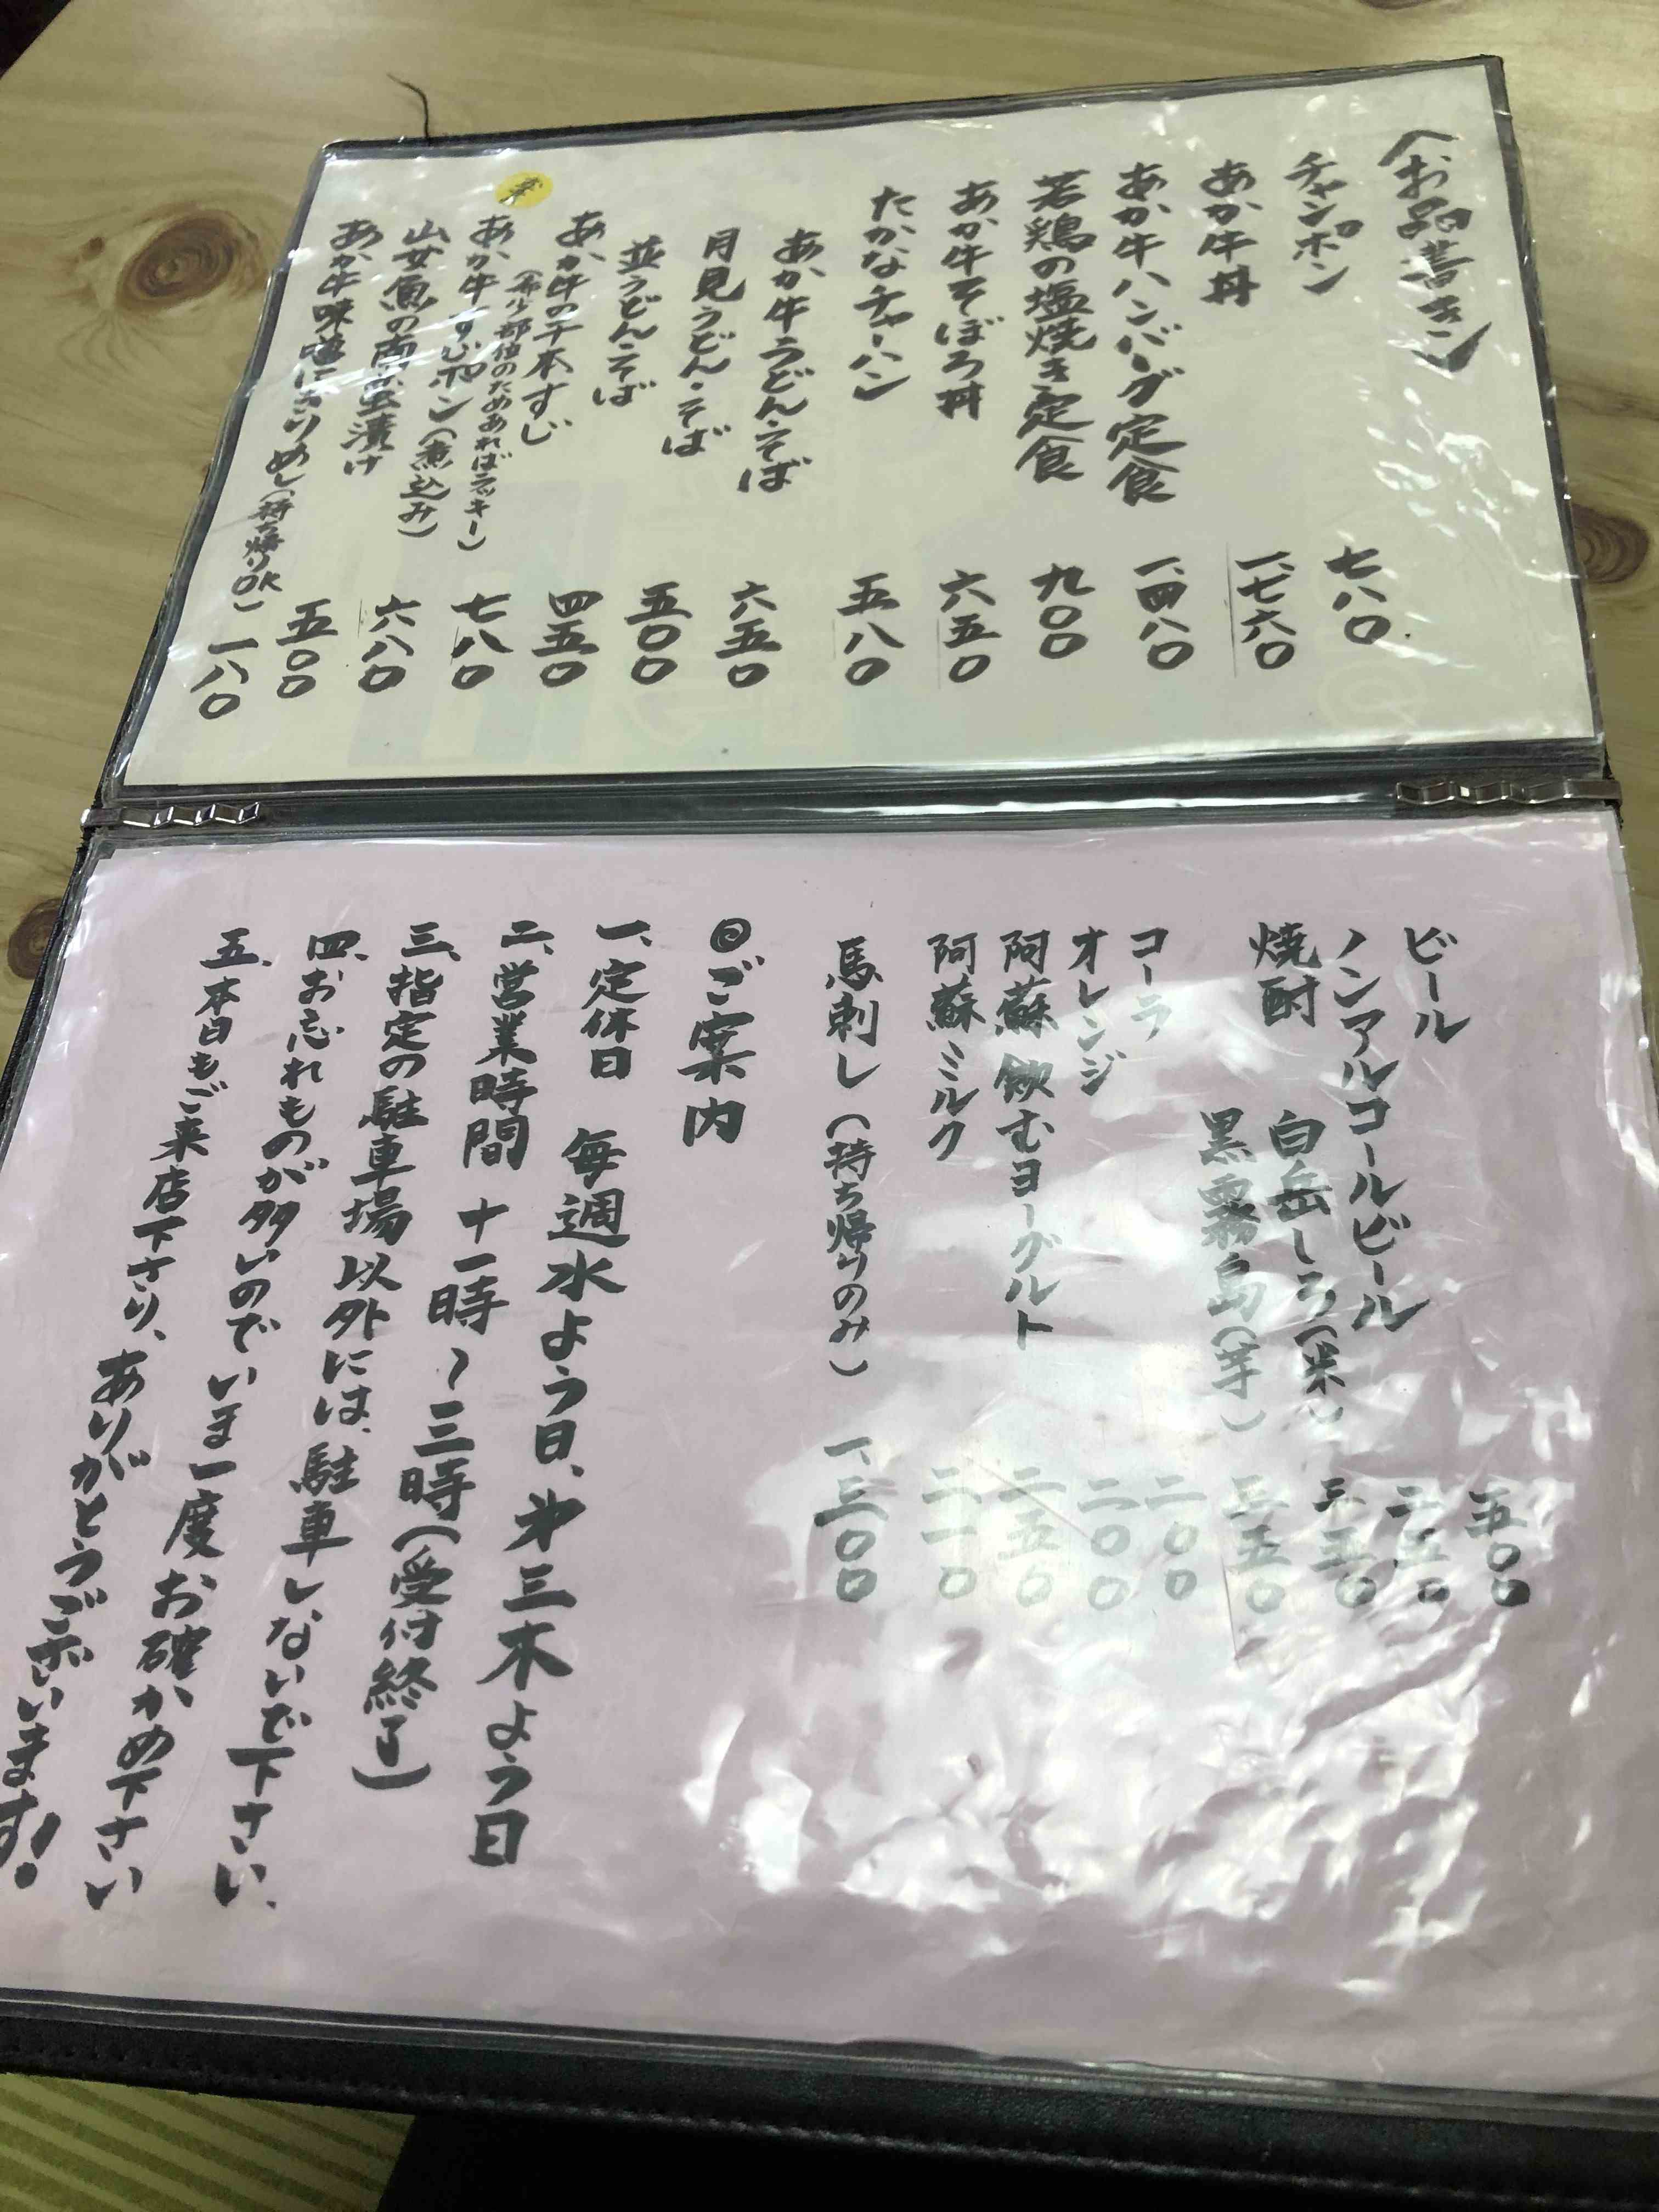 〈お品書き〉
チャンポン 七八〇
あか牛丼 一、七六〇
あか牛ハンバーグ定食 一、四八〇
若鶏の塩焼き定食 九〇〇
あか牛そぼろ丼 六五〇
たかなチャーハン 五八〇
あか牛うどん・そば 六五〇
月見うどん・そば 五〇〇
並うどん・そば 四五〇
あか牛の千本すじ 七八〇
(希少部位のためあればラッキー)
あか牛すじポン(煮込み) 六八〇
山女魚の南蛮漬け 五〇〇
あか牛味噌にぎりめし(持ち帰りOK) 一八〇
ビール 五〇〇
ノンアルコールビール 三五〇
焼酎 白岳しろ(米) 三五〇
黒霧島(芋) 三五〇
コーラ 二〇〇
オレンジ 二〇〇
阿蘇飲むヨーグルト 二五〇
阿蘇ミルク 二一〇
馬刺し(持ち帰りのみ) 一、三〇〇
◎ご案内
一、定休日 毎週水よう日、第三木よう日
二、営業時間 十一時〜三時(受付終了)
三、指定の駐車場以外には、駐車しないで下さい、
四、お忘れものが多いのでいま一度お確かめ下さい
五、本日もご来店下さり、ありがとうございます!